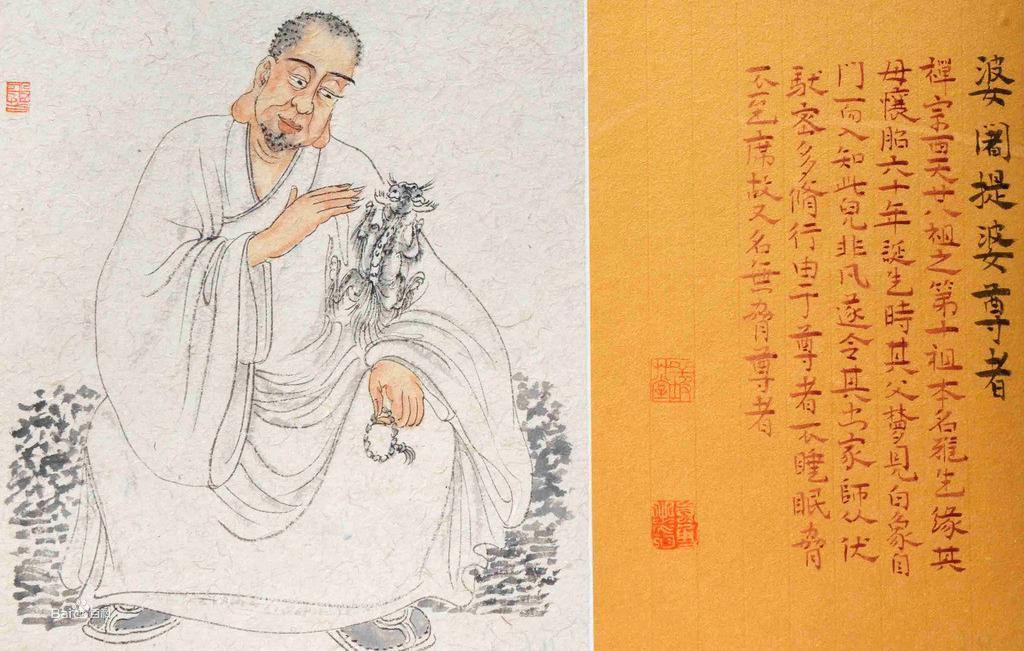 婆闍提婆尊者
禪宗西天廿八祖之第十祖本名難生緣其
母懷胎六十年誕生時其父夢見白象自
門而入知此兒非凡遂令其出家師从伏
馱密多脩行由于尊者不睡眠脅
不至席故又名無脅尊者
Bai 百科